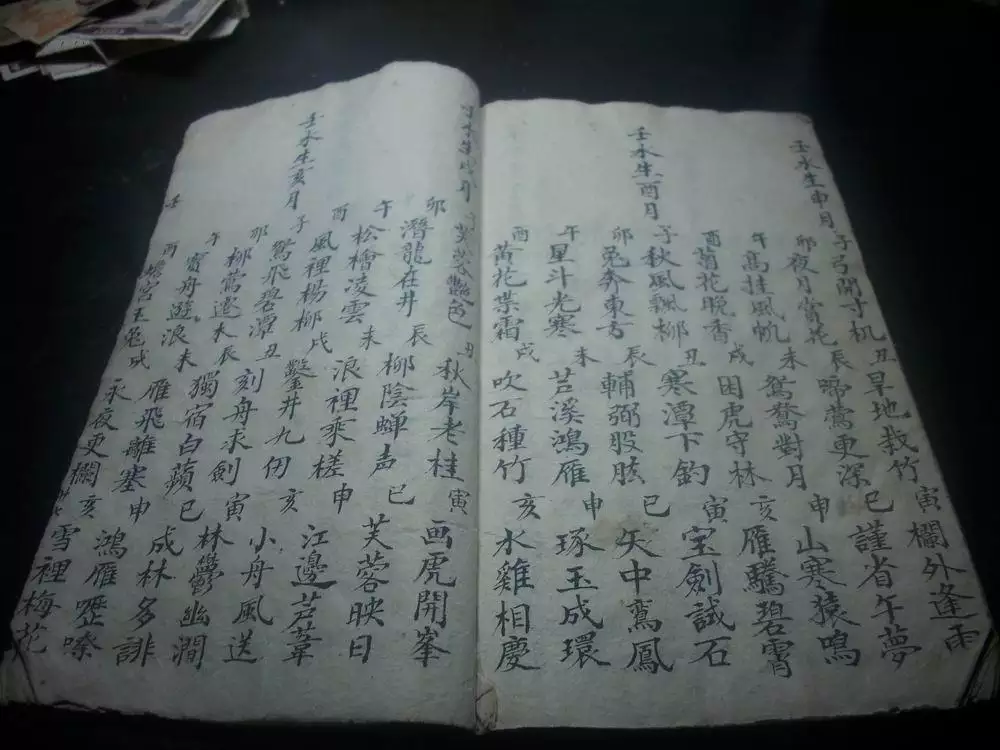 壬水生申月
子弓開寸机 丑旱地栽竹 寅欄外逢雨
卯夜月賞花 辰啼鶯更深 巳謹省午夢
午高挂風帆 未鴛鴦對月 申山寒猿鳴
酉菊花晚香 戌困虎守林 亥雁騰碧霄
壬水生酉月
子秋風飄柳 丑寒潭下釣 寅宝劍試石
卯兔奔東方 辰輔弼股肱 巳矢中鸞鳳
午星斗光寒 未芦溪鴻雁 申琢玉成環
酉黄花業霜 戌吹石種竹 亥水雞相慶
壬水生戌月
芙蓉艷色 丑秋岸老桂 寅画虎開峯
卯潛龍在井 辰柳陰蝉声 巳芙蓉映日
午松檜凌雲 未浪裡乘槎 申江邊芦葦
酉風裡楊柳 戌鑿井九仞 亥小舟風送
壬水生亥月
子鴛飛碧潭 丑刻舟求劍 寅林欝幽澗
卯柳鶯遷木 辰獨宿白蘋 巳成林多誹
午寳舟遊浪 未雁飛離塞 申鴻雁嚦嗦
酉蟾宮玉兔 戌永夜更欄 亥雪裡梅花
壬